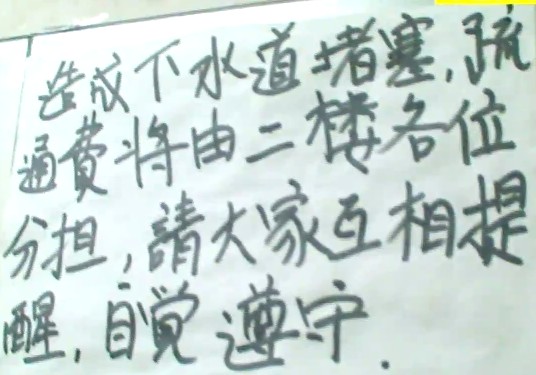 造成下水道堵塞,疏
通費将由二楼各位
分担,請大家互相提
醒,自觉遵守.